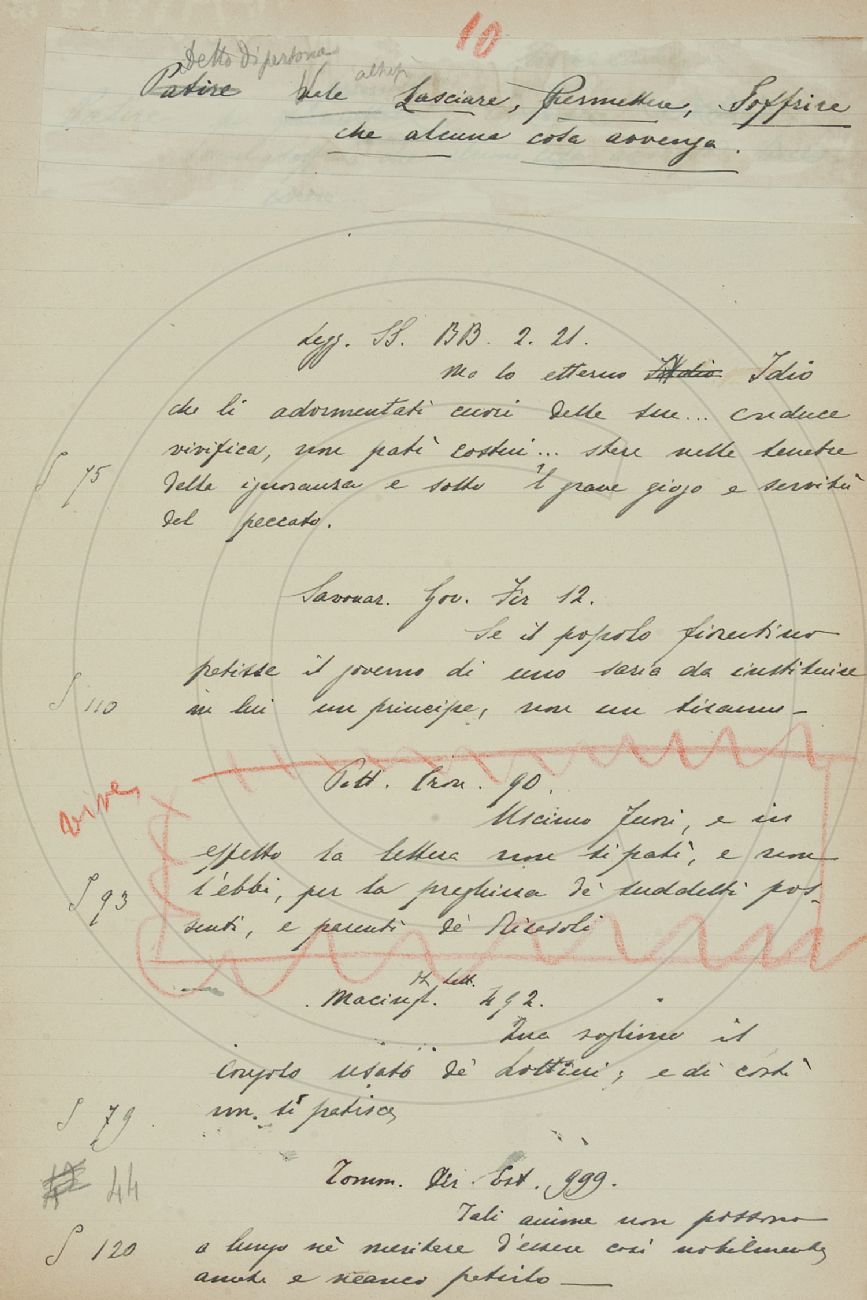 10
Detto di persona
altresì
Patire Vale Lasciare, Permettere, Soffrire
che alcuna cosa avvenga.
Legg. SS. BB. 2. 21.
Ma lo etterno Iddio Idio
che li adormentati cuori delle sue... conduce
vivifica, non patì costui... stare nelle tenebre
S 75
della ignoranza e sotto 'l grave giogo e servitù
del peccato.
Savonar. Gov. Fir 12.
Se il popolo fiorentino
patisse il governo di uno saria da instituire
S 110
in lui un principe, non un tiranno —
Pitt. Cron. 90.
Uscimo fuori, e in
effetto la lettera non si patì, e non
S 93
l'ebbi, per la preghiera de' suddetti pos-
senti, e parenti de' Ricasoli
Macingh. Lett. 492.
il
usato de' Lottini; e di costì
S 79.
nn. si patisce
44
Tomm. Diz. Est. 999.
Tali anime non possono
S 120
a lungo nè meritare d'essere così nobilmente
amate e neanco patirlo —